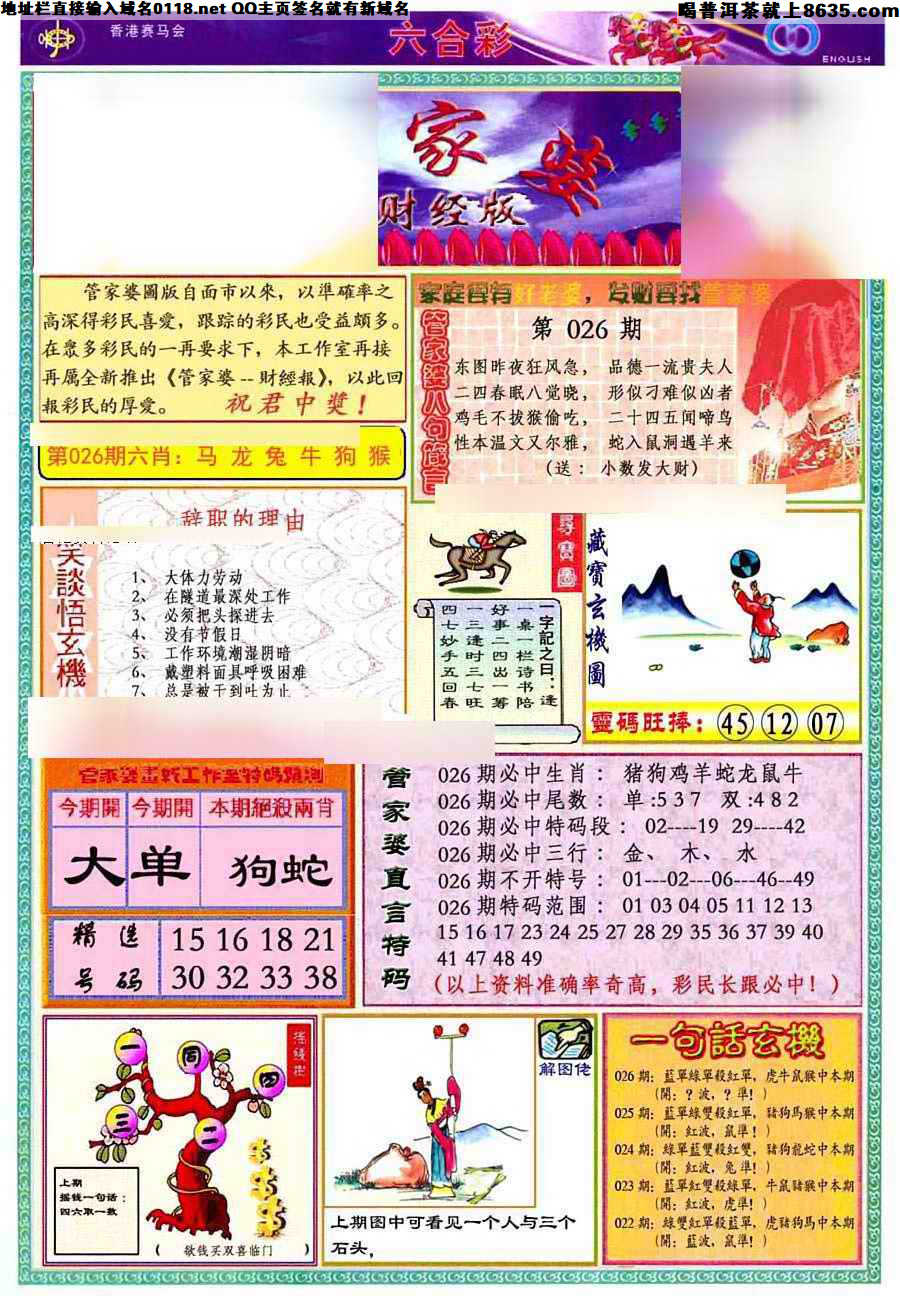 地址栏直接输入域名0118.net QQ主页签名就有新域名
喝普洱茶就上8635.com
香港赛马会
六合彩
ENGLISH
家 婆
财经版
管家婆圖版自面市以來，以準確率之
高深得彩民喜愛，跟踪的彩民也受益頗多。
在眾多彩民的一再要求下，本工作室再接
再厲全新推出《管家婆--財經報》，以此回
報彩民的厚愛。 祝君中獎！
第026期六肖：马 龙 兔 牛 狗 猴
家庭要有好老婆，发财要找管家婆
管家婆八句箴言
第 026 期
东图昨夜狂风急， 品德一流贵夫人
二四春眠八觉晓， 形似刁难似凶者
鸡毛不拔猴偷吃， 二十四五闻啼鸟
性本温文又尔雅， 蛇入鼠洞遇羊来
（送：小数发大财）
笑談悟玄機
辞职的理由
1、 大体力劳动
2、 在隧道最深处工作
3、 必须把头探进去
4、 没有节假日
5、 工作环境潮湿阴暗
6、 戴塑料面具呼吸困难
7、 总是被干到吐为止
尋寶圖
一字記之曰：逢
一桌一栏诗书陪
好事二四出一筹
一三逢时三七旺
四七妙手五回春
藏寶玄機圖
靈碼旺捧：45 12 07
今期開 今期開 本期絕殺兩肖
大 单 狗蛇
精选号码
15 16 18 21
30 32 33 38
管家婆直言特码
026 期必中生肖： 猪狗鸡羊蛇龙鼠牛
026 期必中尾数： 单:5 3 7 双:4 8 2
026 期必中特码段： 02----19 29----42
026 期必中三行： 金、 木、 水
026 期不开特号： 01---02---06---46--49
026 期特码范围： 01 03 04 05 11 12 13
15 16 17 23 24 25 27 28 29 35 36 37 39 40
41 47 48 49
（以上资料准确率奇高，彩民长跟必中！）
摇錢樹
一 周 四 三 二
上期
摇钱一句话：
四六取一数
（ 砍钱买双喜临门 ）
解图佬
上期图中可看见一个人与三个
石头，
一句話玄機
026 期：藍單綠單殺紅單，虎牛鼠猴中本期
（開：？波，？準！）
025 期：藍單綠雙殺紅單，豬狗馬猴中本期
（開：紅波，鼠準！）
024 期：綠單藍雙殺紅雙，豬狗龍蛇中本期
（開：紅波，兔準！）
023 期：藍單紅雙殺綠單，牛鼠豬猴中本期
（開：紅波，虎準！）
022 期：綠雙紅單殺藍單，虎豬狗馬中本期
（開：藍波，鼠準！）